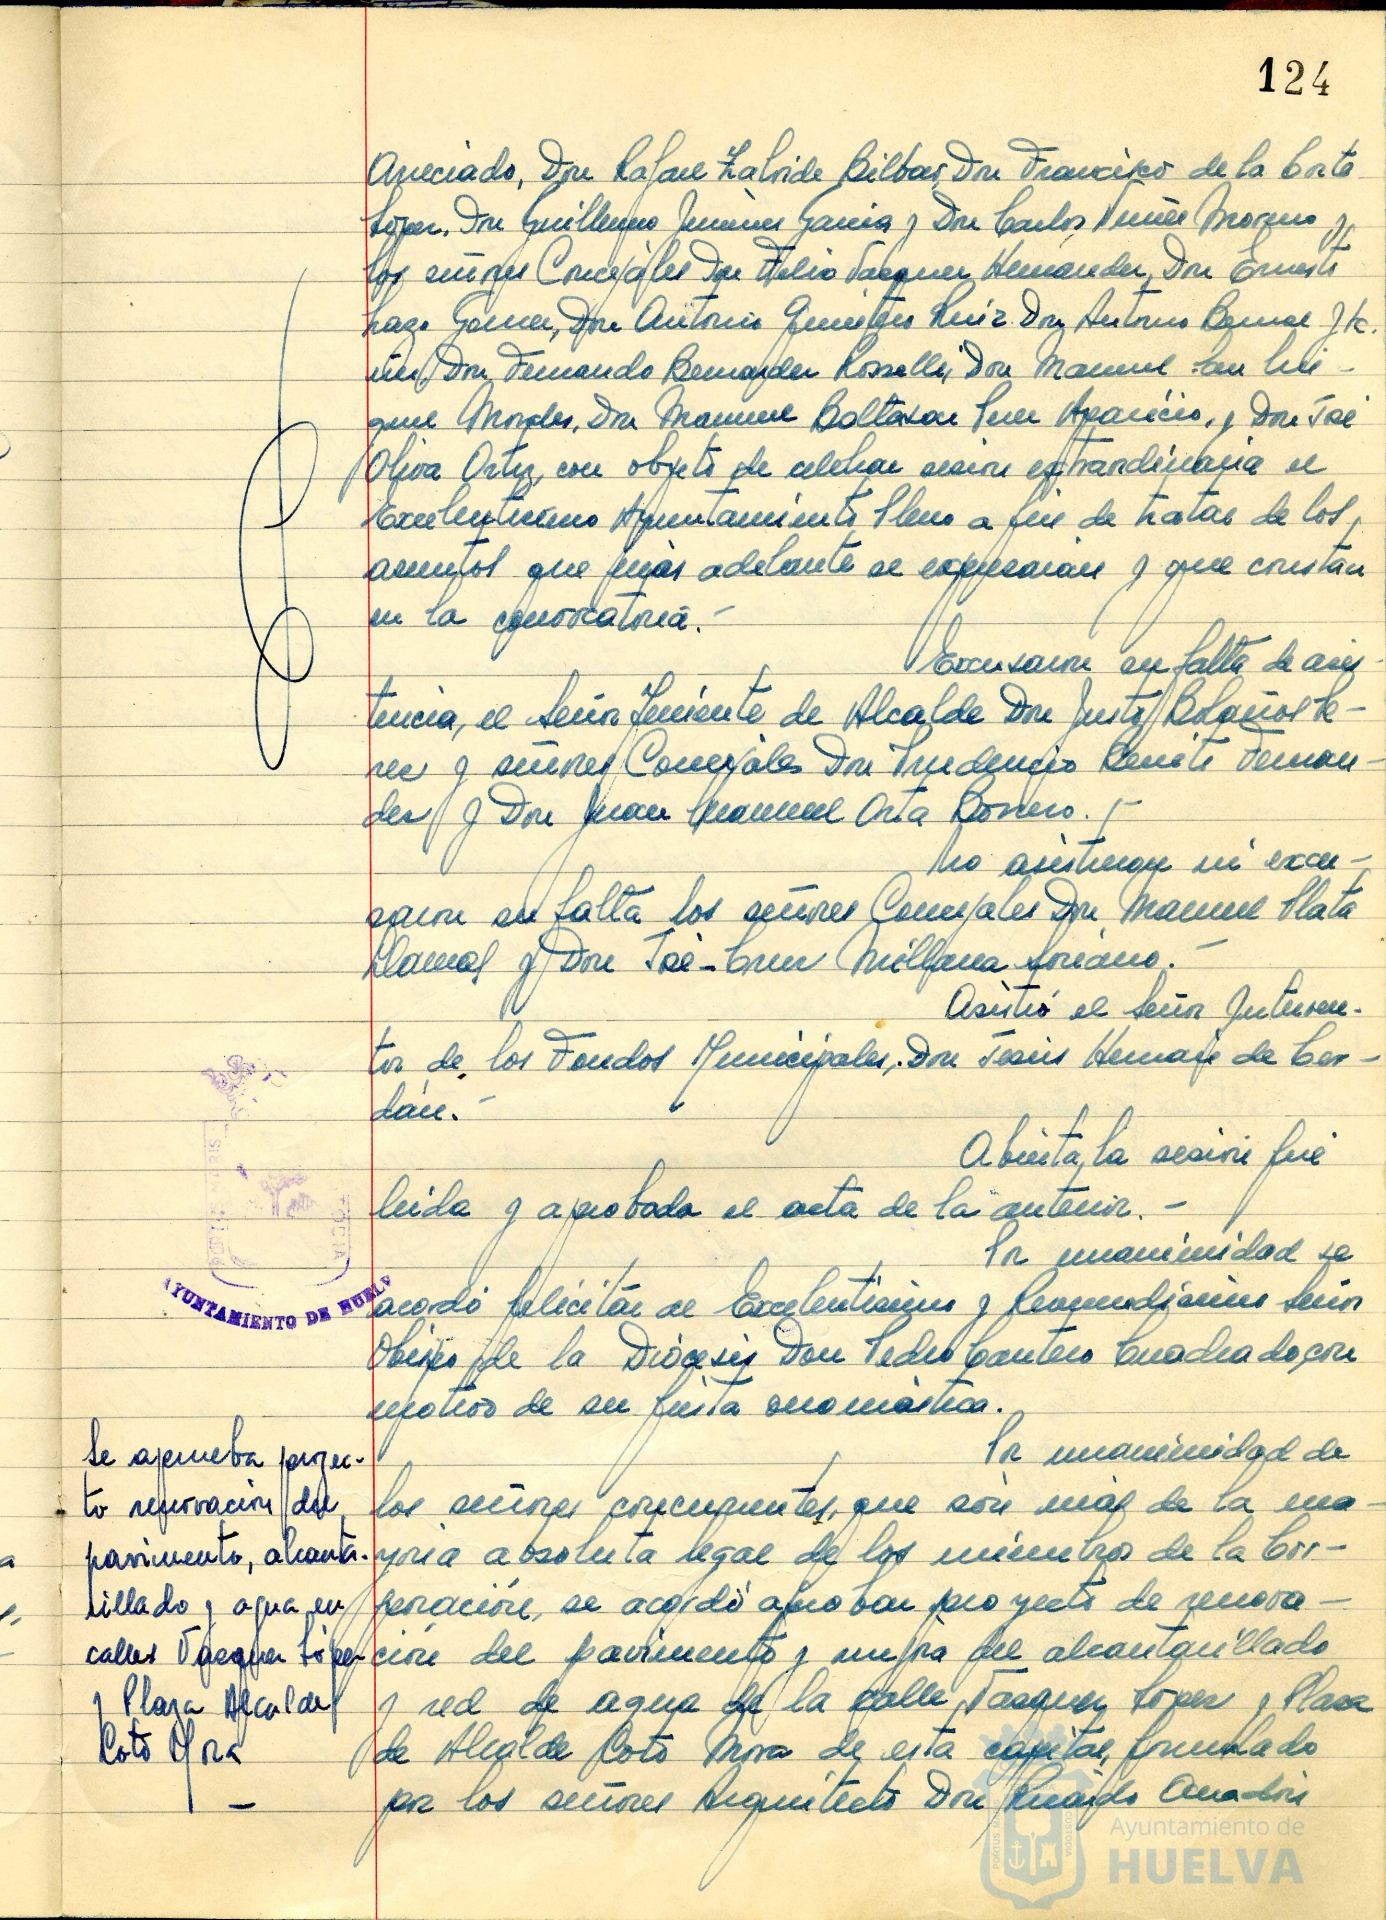 124
Don Rafael Zalvide Bilbao, Don Francisco de la Corte
López, Don Guillermo Jiménez García y Don Carlos Núñez Moreno y
los señores Concejales Don Felix Vazquez Hernández, Don Ernesto
Lazo Gómez, Don Antonio Quintero Ruiz Don Antonio Bernal
Don Fernando Bernardez Rosselló, Don Manuel San Mi-
guel Morales, Don Manuel Baltasar Aparicio, y Don José
Oliva Ortiz, con objeto de celebrar sesión extraordinaria el
Excelentísimo Ayuntamiento Pleno a fin de tratar de los
asuntos que más adelante se expresarán y que constan
en la convocatoria.-
Excusaron su falta de asis-
tencia, el Señor Teniente de Alcalde Don Justo Bolaños Pe-
rez y señores Concejales Don Prudencio Benito Fernan-
dez y Don Juan Manuel Orta Borrero.-
No asistieron ni excu-
saron su falta los señores Concejales Don Manuel Plata
Llamas y Don José-Cruz Millana Soriano.-
Asistió el Señor Interven-
tor de los Fondos Municipales, Don Jesús Hernaje de Cer-
dán.-
Abierta la sesión fué
leida y aprobada el acta de la anterior.-
Por unanimidad se
acordó felicitar al Excelentísimo y Reverendísimo Señor
Obispo de la Diócesis Don Pedro Cantero Cuadrado, con
motivo de su fiesta onomástica.
Se aprueba proyec-
to renovación del
pavimento, alcanta-
rillado y agua en
calles Vazquez López
y Plaza Alcalde
Coto Mora
Por unanimidad de
los señores concurrentes, que son más de la ma-
yoría absoluta legal de los miembros de la Cor-
poración, se acordó aprobar proyecto de renova-
ción del pavimento y mejora del alcantarillado
y red de agua de la calle Vazquez López y Plaza
de Alcalde Coto Mora de esta capital, formulado
por los señores Arquitecto Don Ricardo Anadón
AYUNTAMIENTO DE HUELVA
Ayuntamiento de
HUELVA